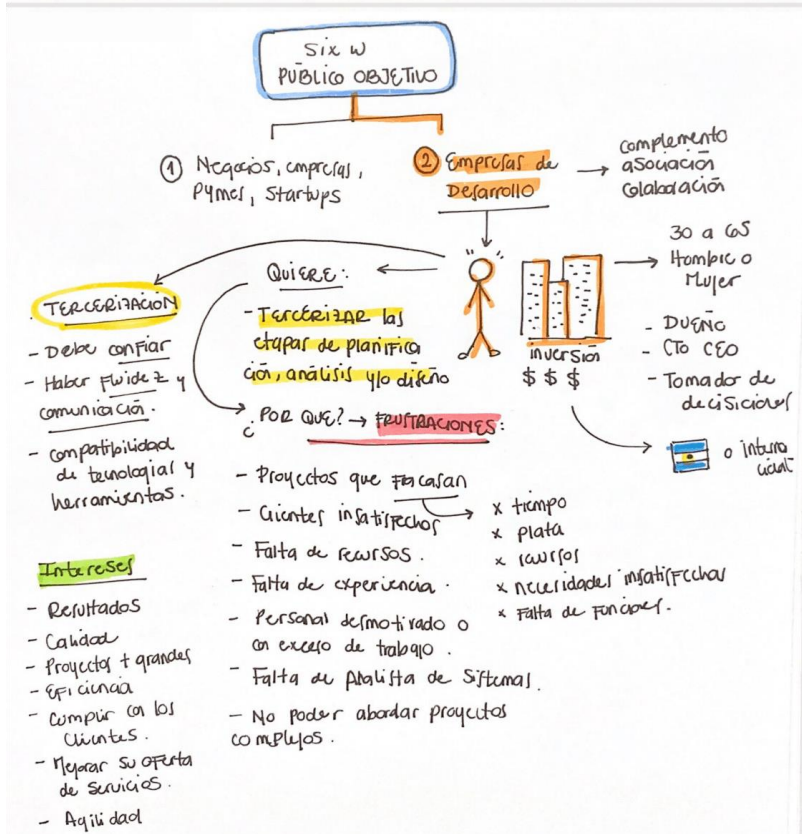 Six W
PÚBLICO OBJETIVO
① Negocios, empresas,
Pymes, Startups
② Empresas de
Desarrollo
complemento
asociación
colaboración
30 a 65
Hombre o
Mujer
- DUEÑO
- CTO CEO
- Tomador de
decisiciones
inversión
$ $ $
o interna
cional
QUIERE:
- TERCERIZAR las
etapas de planifica
ción, análisis y/o diseño
¿POR QUE? → FRUSTRACIONES:
- Proyectos que Fracasan
- Clientes insatisfechos
- Falta de recursos.
- Falta de experiencia.
- Personal desmotivado o
con exceso de trabajo.
- Falta de Analista de Sistemas.
- No poder abordar proyectos
complejos.
x tiempo
x plata
x recursos
x necesidades insatisfechas
x Falta de Funciones.
TERCERIZACIÓN
- Debe confiar
- Haber Fluidez y
comunicación.
- compatibilidad
de tecnologias y
herramientas.
Intereses
- Resultados
- Calidad
- Proyectos + grandes
- Eficiencia
- cumplir con los
clientes.
- Mejorar su oferta
de servicios.
- Agilidad